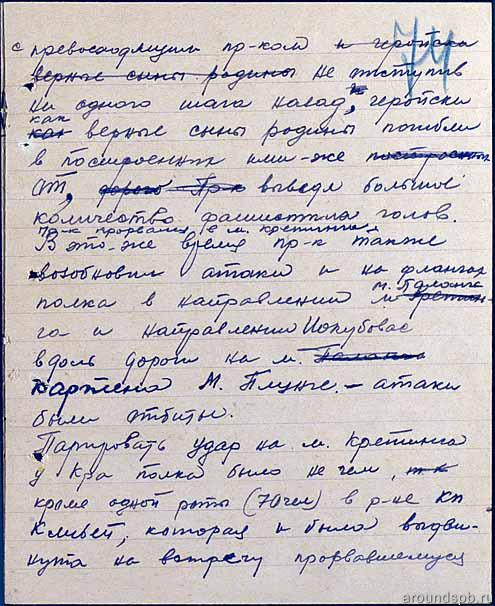 74
с превосходящим пр-ком и геройски
верные сыны родины не отступив
ни одного шага назад, и геройски
как
как верные сыны родины погибли
в построенных ими-же построенных
ОТ, дорого Пр-к выведя большое
количество фашистких голов.
Пр-к прорвался в м. Кретинга
В это-же время пр-к также
возобновил атаки и на флангах
м. Паланга
полка в направлении м. Кретин
га и направлении Иокубовас
вдоль дороги на м. Паланга
Картена М. Плунге. – атаки
были отбиты.
Парировать удар на м. Кретинга
у К-ра полка было не чем, т.к
кроме одной роты (70 чел) в р-не КП
которая и была выдви-
нута на встречу прорвавшемуся
aroundspb.ru